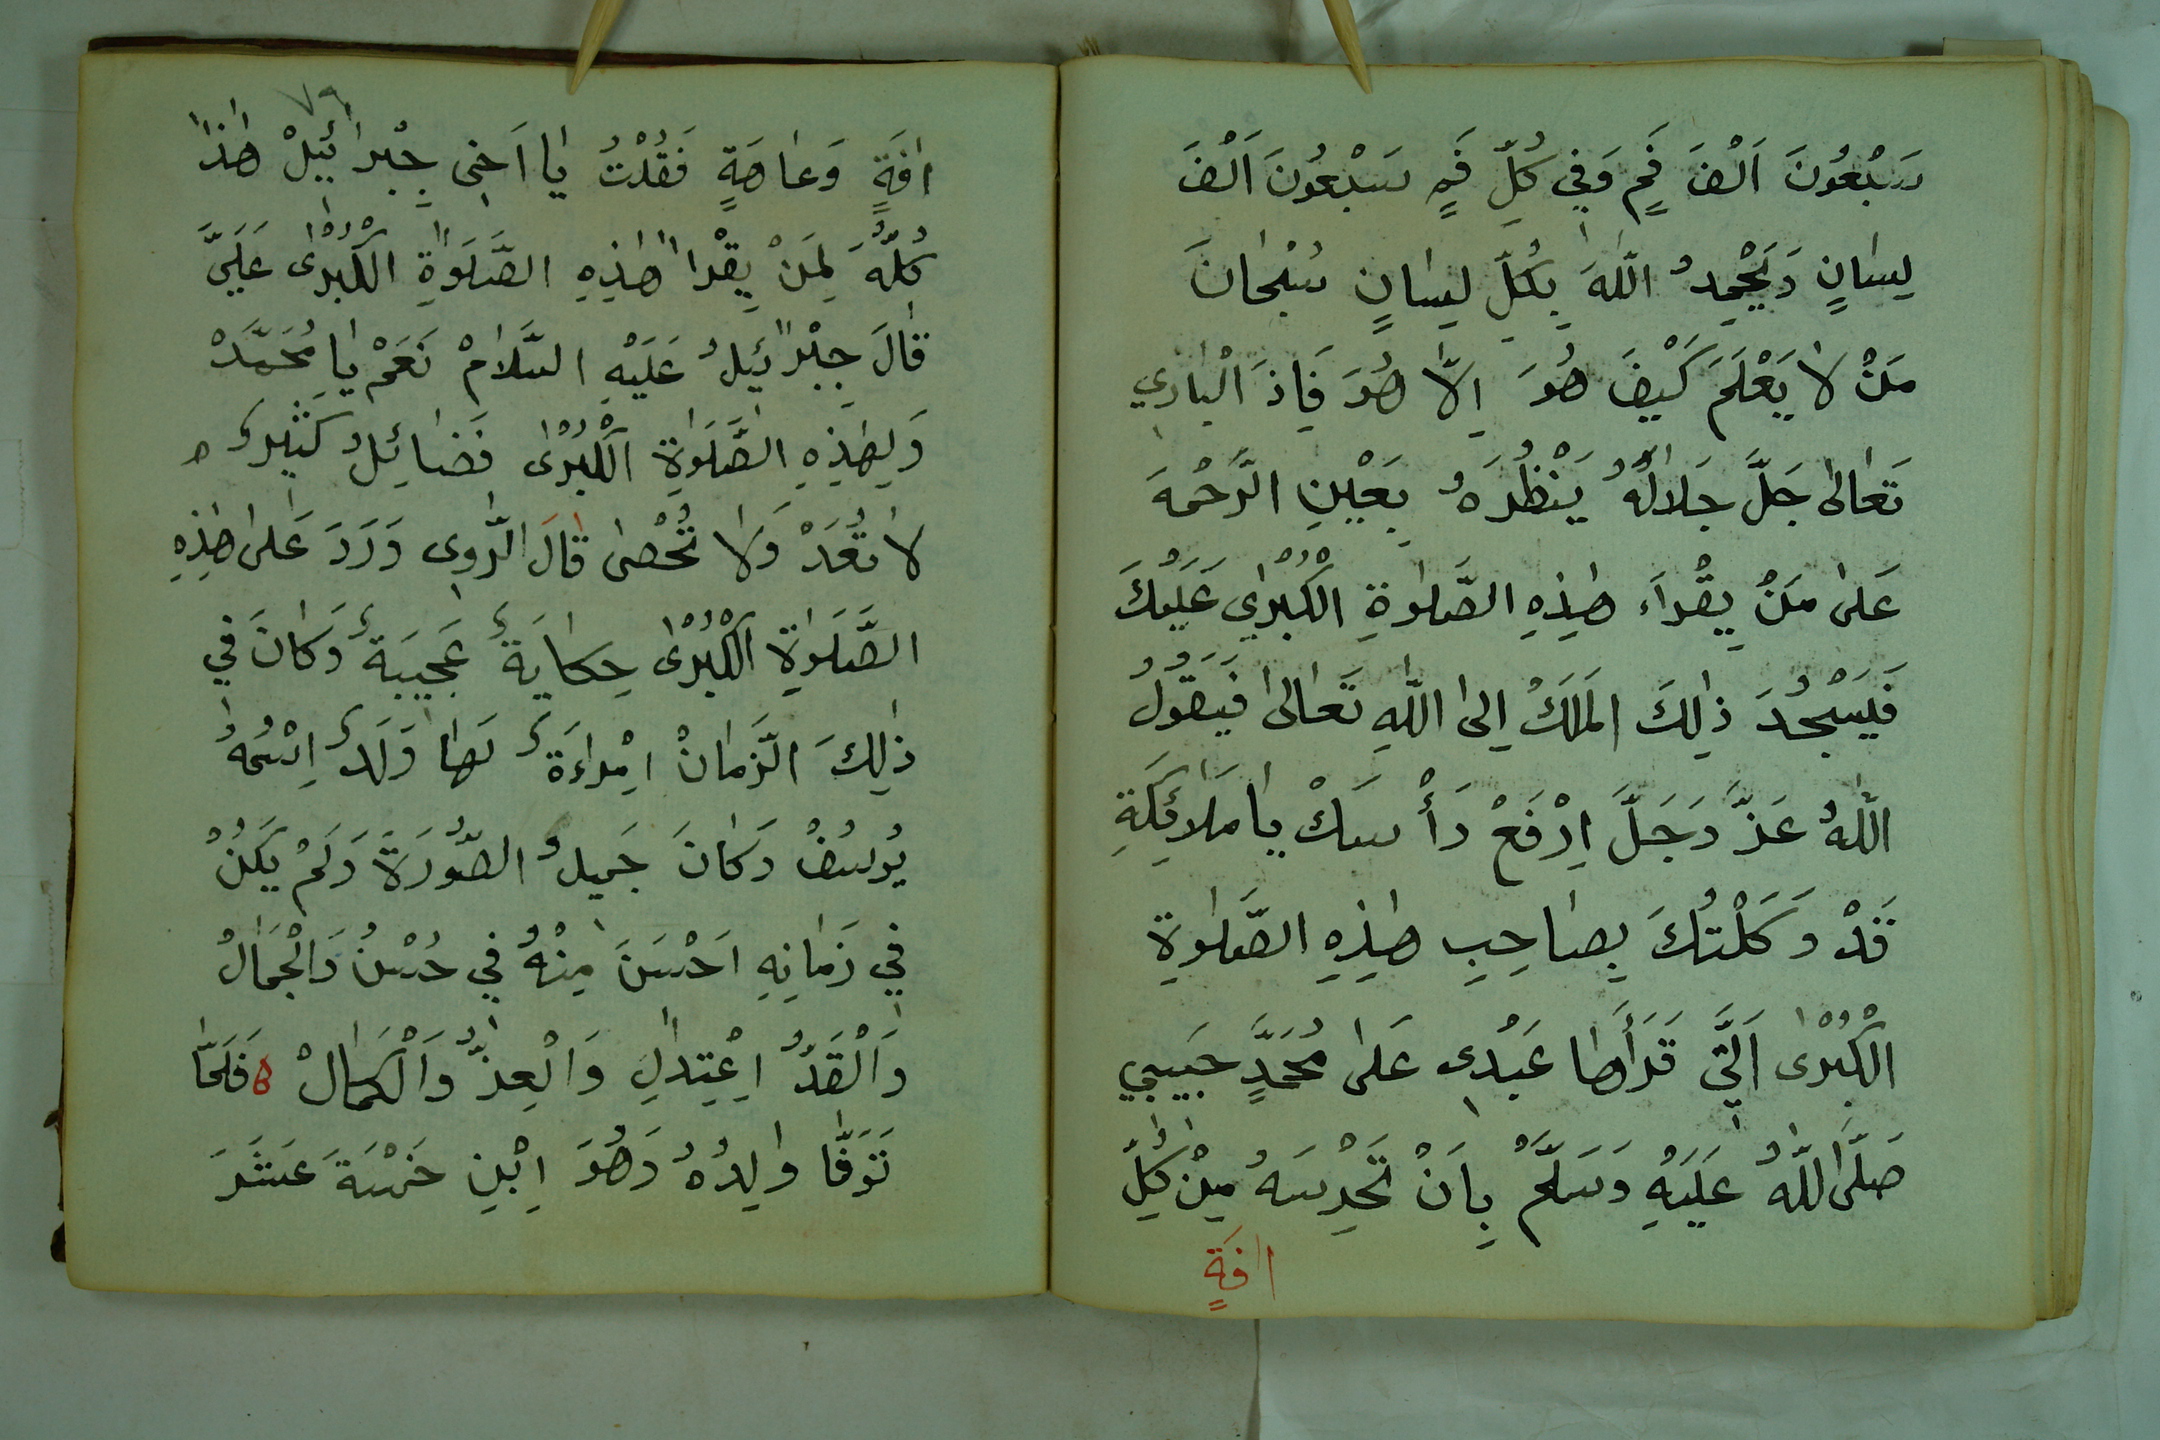 سَبْعُونَ اَلْفَ فَمٍ وَفِي كُلِّ فَمٍ سَبْعُونَ اَلْفَ
لِسَانٍ وَيُحْمِدُ اللّٰهَ بِكُلِّ لِسَانٍ سُبْحَانَ
مَنْ لَا يَعْلَمُ كَيْفَ هُوَ اِلَّا هُوَ فَاِذَ الْبَارِي
تَعَالٰى جَلَّ جَلَالُهُ يَنْظُرَهُ بِعَيْنِ الرَّحْمَةَ
عَلٰى مَنْ يِقْرَاءَ هٰذِهِ الصَّلٰوةِ الْكُبْرٰي عَلَيْكَ
فَيَسْجُدَ ذٰلِكَ الْمَلَكُ اِلَى اللّٰهِ تَعَالٰى فَيَقُولُ
اللّٰهُ عَزَّ وَجَلَّ اِرْفَعْ رَأْسَكْ يَا مَلَائِكَةِ
قَدْ وَكَلْتُكَ بِصَاحِبِ هٰذِهِ الصَّلٰوةِ
الْكُبْرٰى اَلَّتِي قَرَأَهَا عَبْدِى عَلٰى مُحَمَّدٍ حَبِيبِي
صَلَّى اللّٰهُ عَلَيْهِ وَسَلَّمْ بِاَنْ تَحْرِسَهُ مِنْ كُلِّ
افَةٍ
٧٩
افَةٍ وَعَاهَةٍ فَقُلْتُ يَا اَخِى جِبْرَائِيلْ هٰذَا
كُلُّهُ لِمَنْ يِقْرَا هٰذِهِ الصَّلَوٰةِ الْكُبْرٰى عَلَيَّ
قَالَ جِبْرَائِيلُ عَلَيْهِ السَّلَامْ نَعَمْ يَا مُحَمَّدْ
وَلِهٰذِهِ الصَّلَوٰةِ الْكُبْرٰى فَضَائِلُ كَثِيرٌ
لَا تُعَدْ وَلَا تُحْصٰى قَالَ الرَّوِى وَرَدَ عَلٰى هٰذِهِ
الصَّلَوٰةِ الْكُبْرٰى حِكَايَةٌ عَجِيبَةٌ وَكَانَ فِي
ذٰلِكَ الزَّمَانْ اِمْرَاءَةٌ لَهَا وَلَدٌ اِسْمُهُ
يُوسُفْ وَكَانَ جَمِيلُ الصُّورَةَ وَلَمْ يَكُنْ
فِي زَمَانِهِ اَحْسَنَ مِنْهُ فِي حُسْنُ وَالْجَمَالْ
وَالْقَدُّ اِعْتِدَالِ وَالْعِزُّ وَالْكَمَالْ ه فَلَمَّا
تَوَفَّا وَالِدُهُ وَهُوَ اِبْنِ خَمْسَةَ عَشَرَ